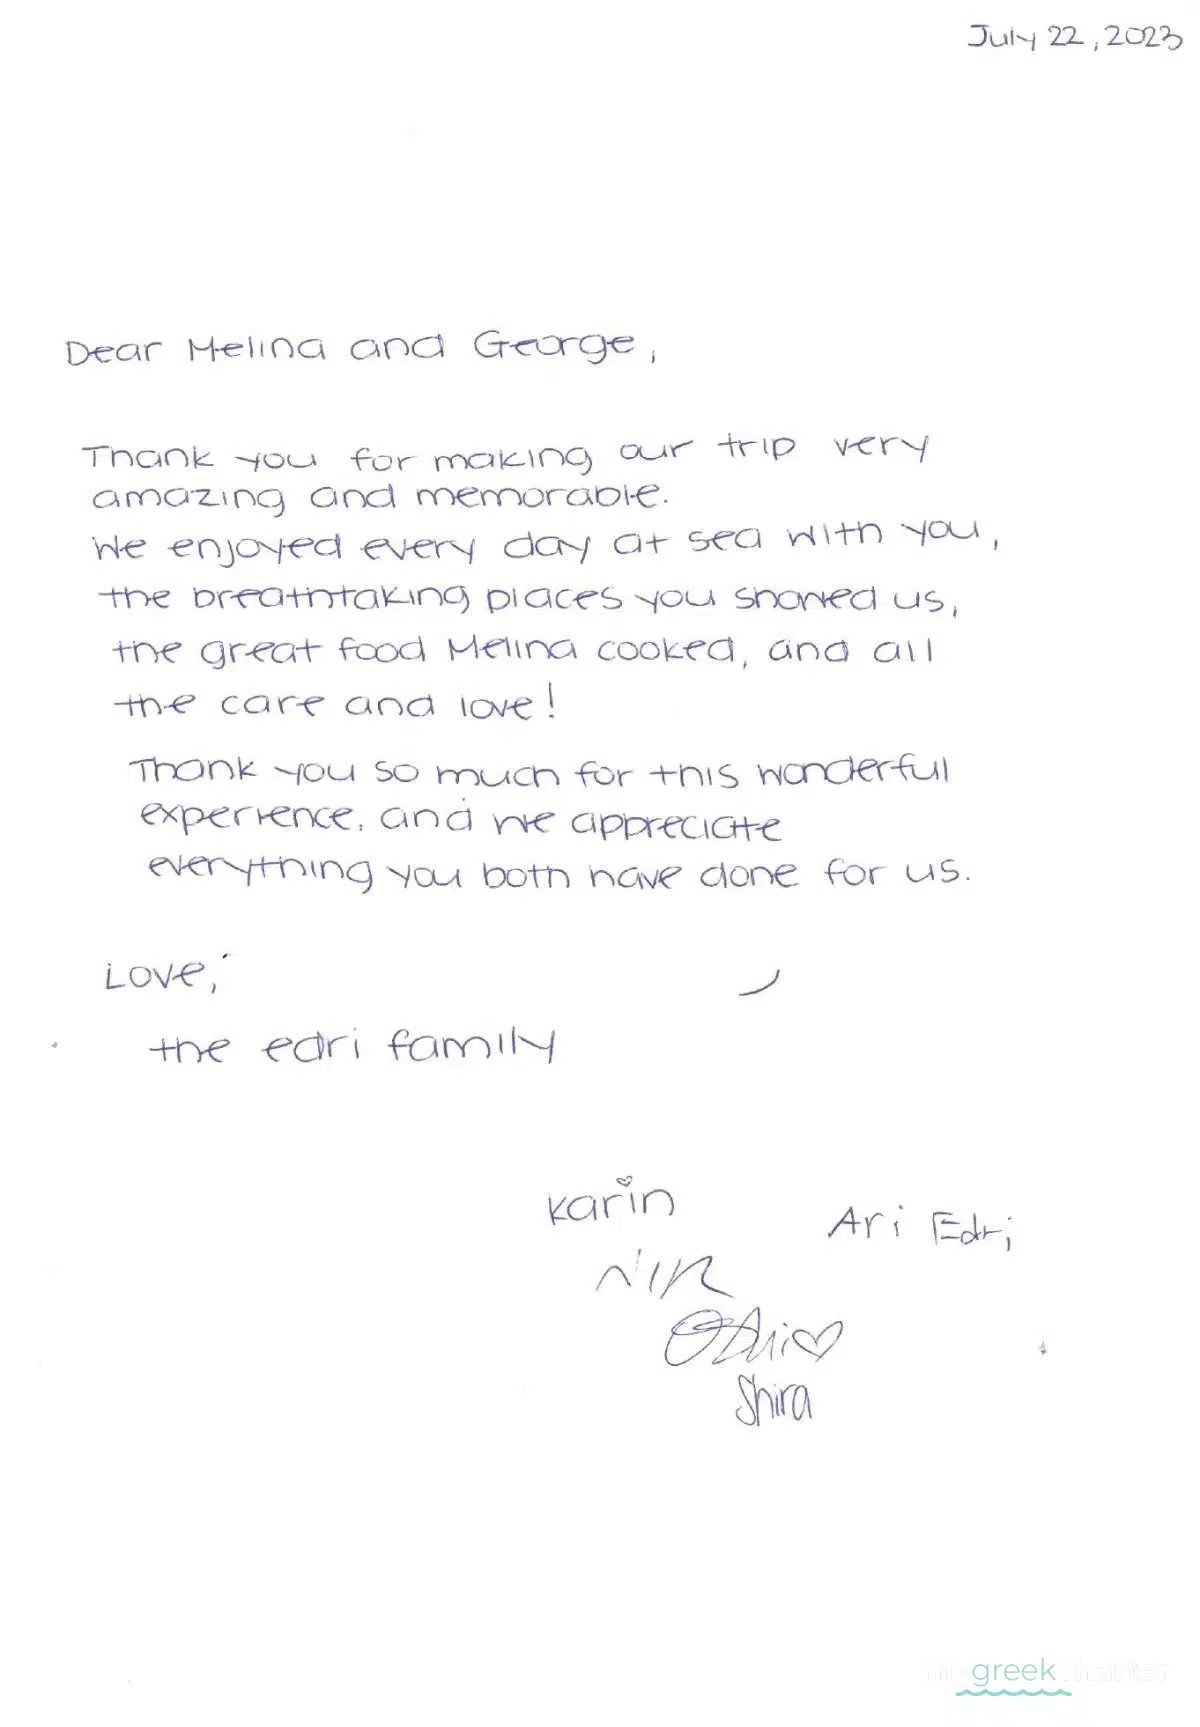 July 22, 2023
Dear Melina and George,
Thank you for making our trip very
amazing and memorable.
We enjoyed every day at sea with you,
the breathtaking places you showed us,
the great food Melina cooked, and all
the care and love!
Thank you so much for this wonderful
experience, and we appreciate
everything you both have done for us.
Love,
the edri family
Karin
Ari Edri
NIR
Shira
my greek charter